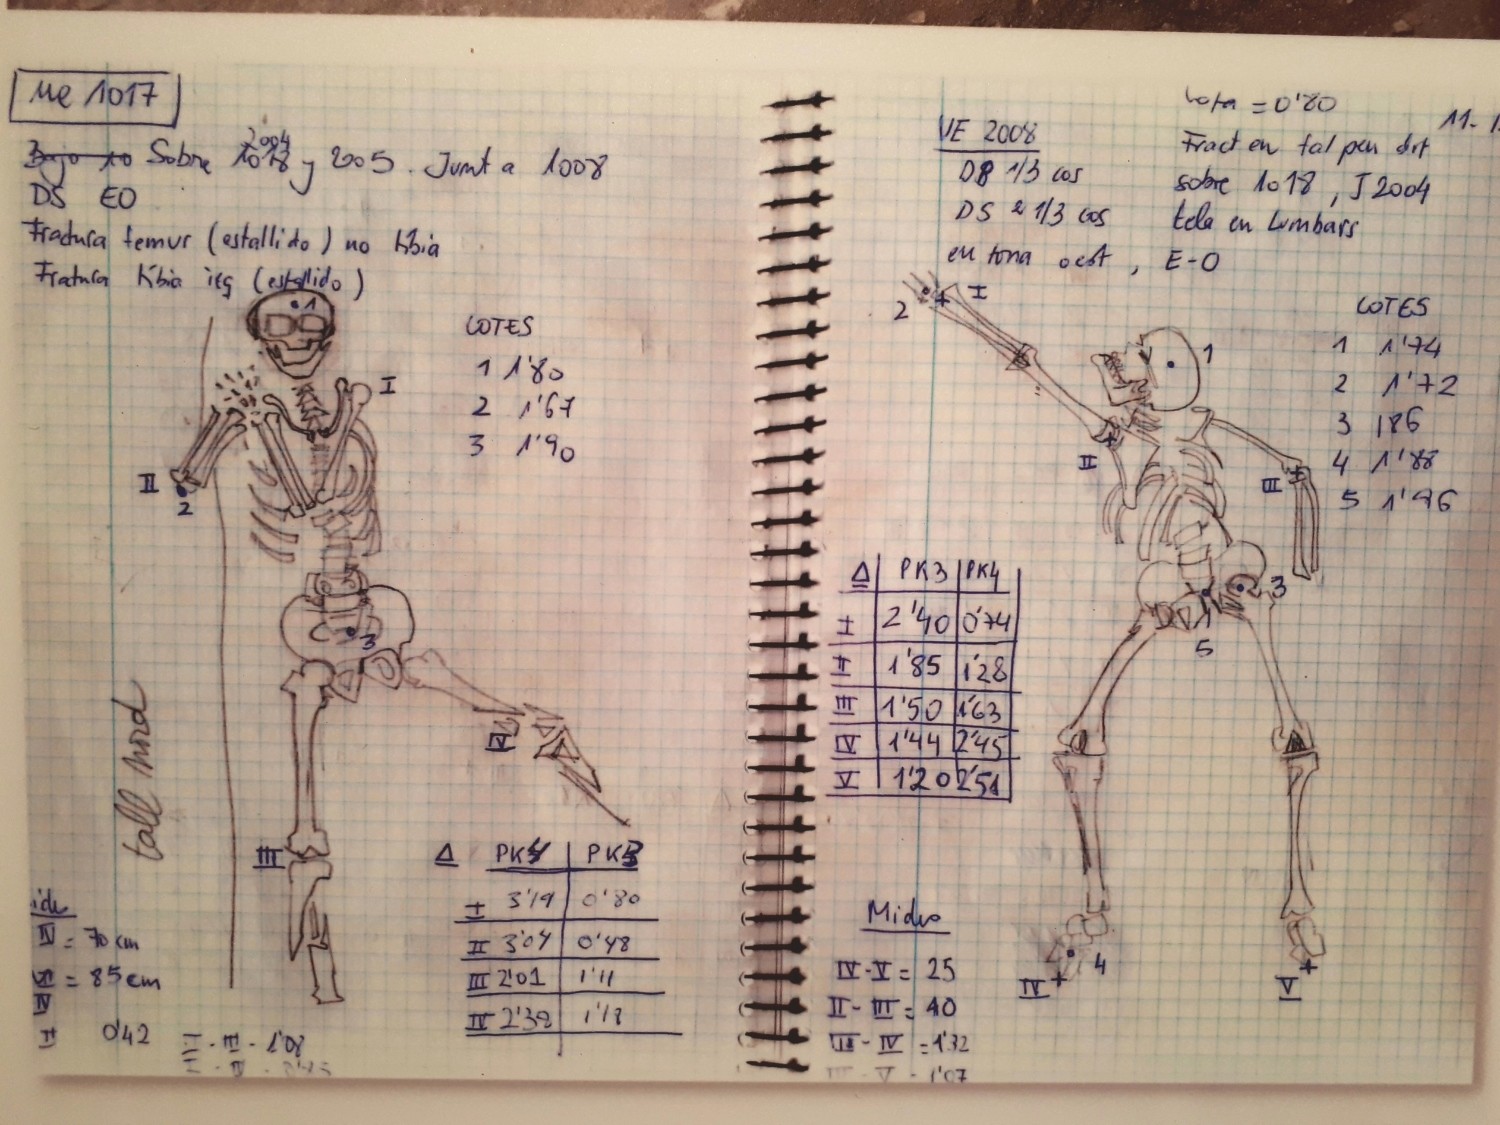 ue 1017
2004
Bajo 10 Sobre 1018 y 2005. Junt a 1008
DS EO
Fractura femur (estallido) no tibia
Fractura tibia izq (estallido)
COTES
1 1'80
2 1'67
3 1'90
1
I
II
2
3
IV
III
tall nord
Δ PK4 PK3
I 3'19 0'80
II 3'04 0'48
III 2'01 1'11
IV 2'32 1'18
= 70 cm
= 85 cm
IV
0'42
I - III - 1'08
UE 2008
D8 1/3 cos
DS 2 1/3 cos
en zona oest, E-O
cota = 0'80
11-1
Fract en tal peu drt
sobre 1018, J 2004
tela en lumbars
COTES
1 1'74
2 1'72
3 186
4 1'88
5 1'96
2
I
1
II
III
3
5
4
IV
V
Δ PK3 PK4
I 2'40 0'74
II 1'85 1'28
III 1'50 1'63
IV 1'44 2'45
V 1'20 2'51
Mides
IV-V = 25
II-III = 40
III-IV = 1'32
III - V - 1'07